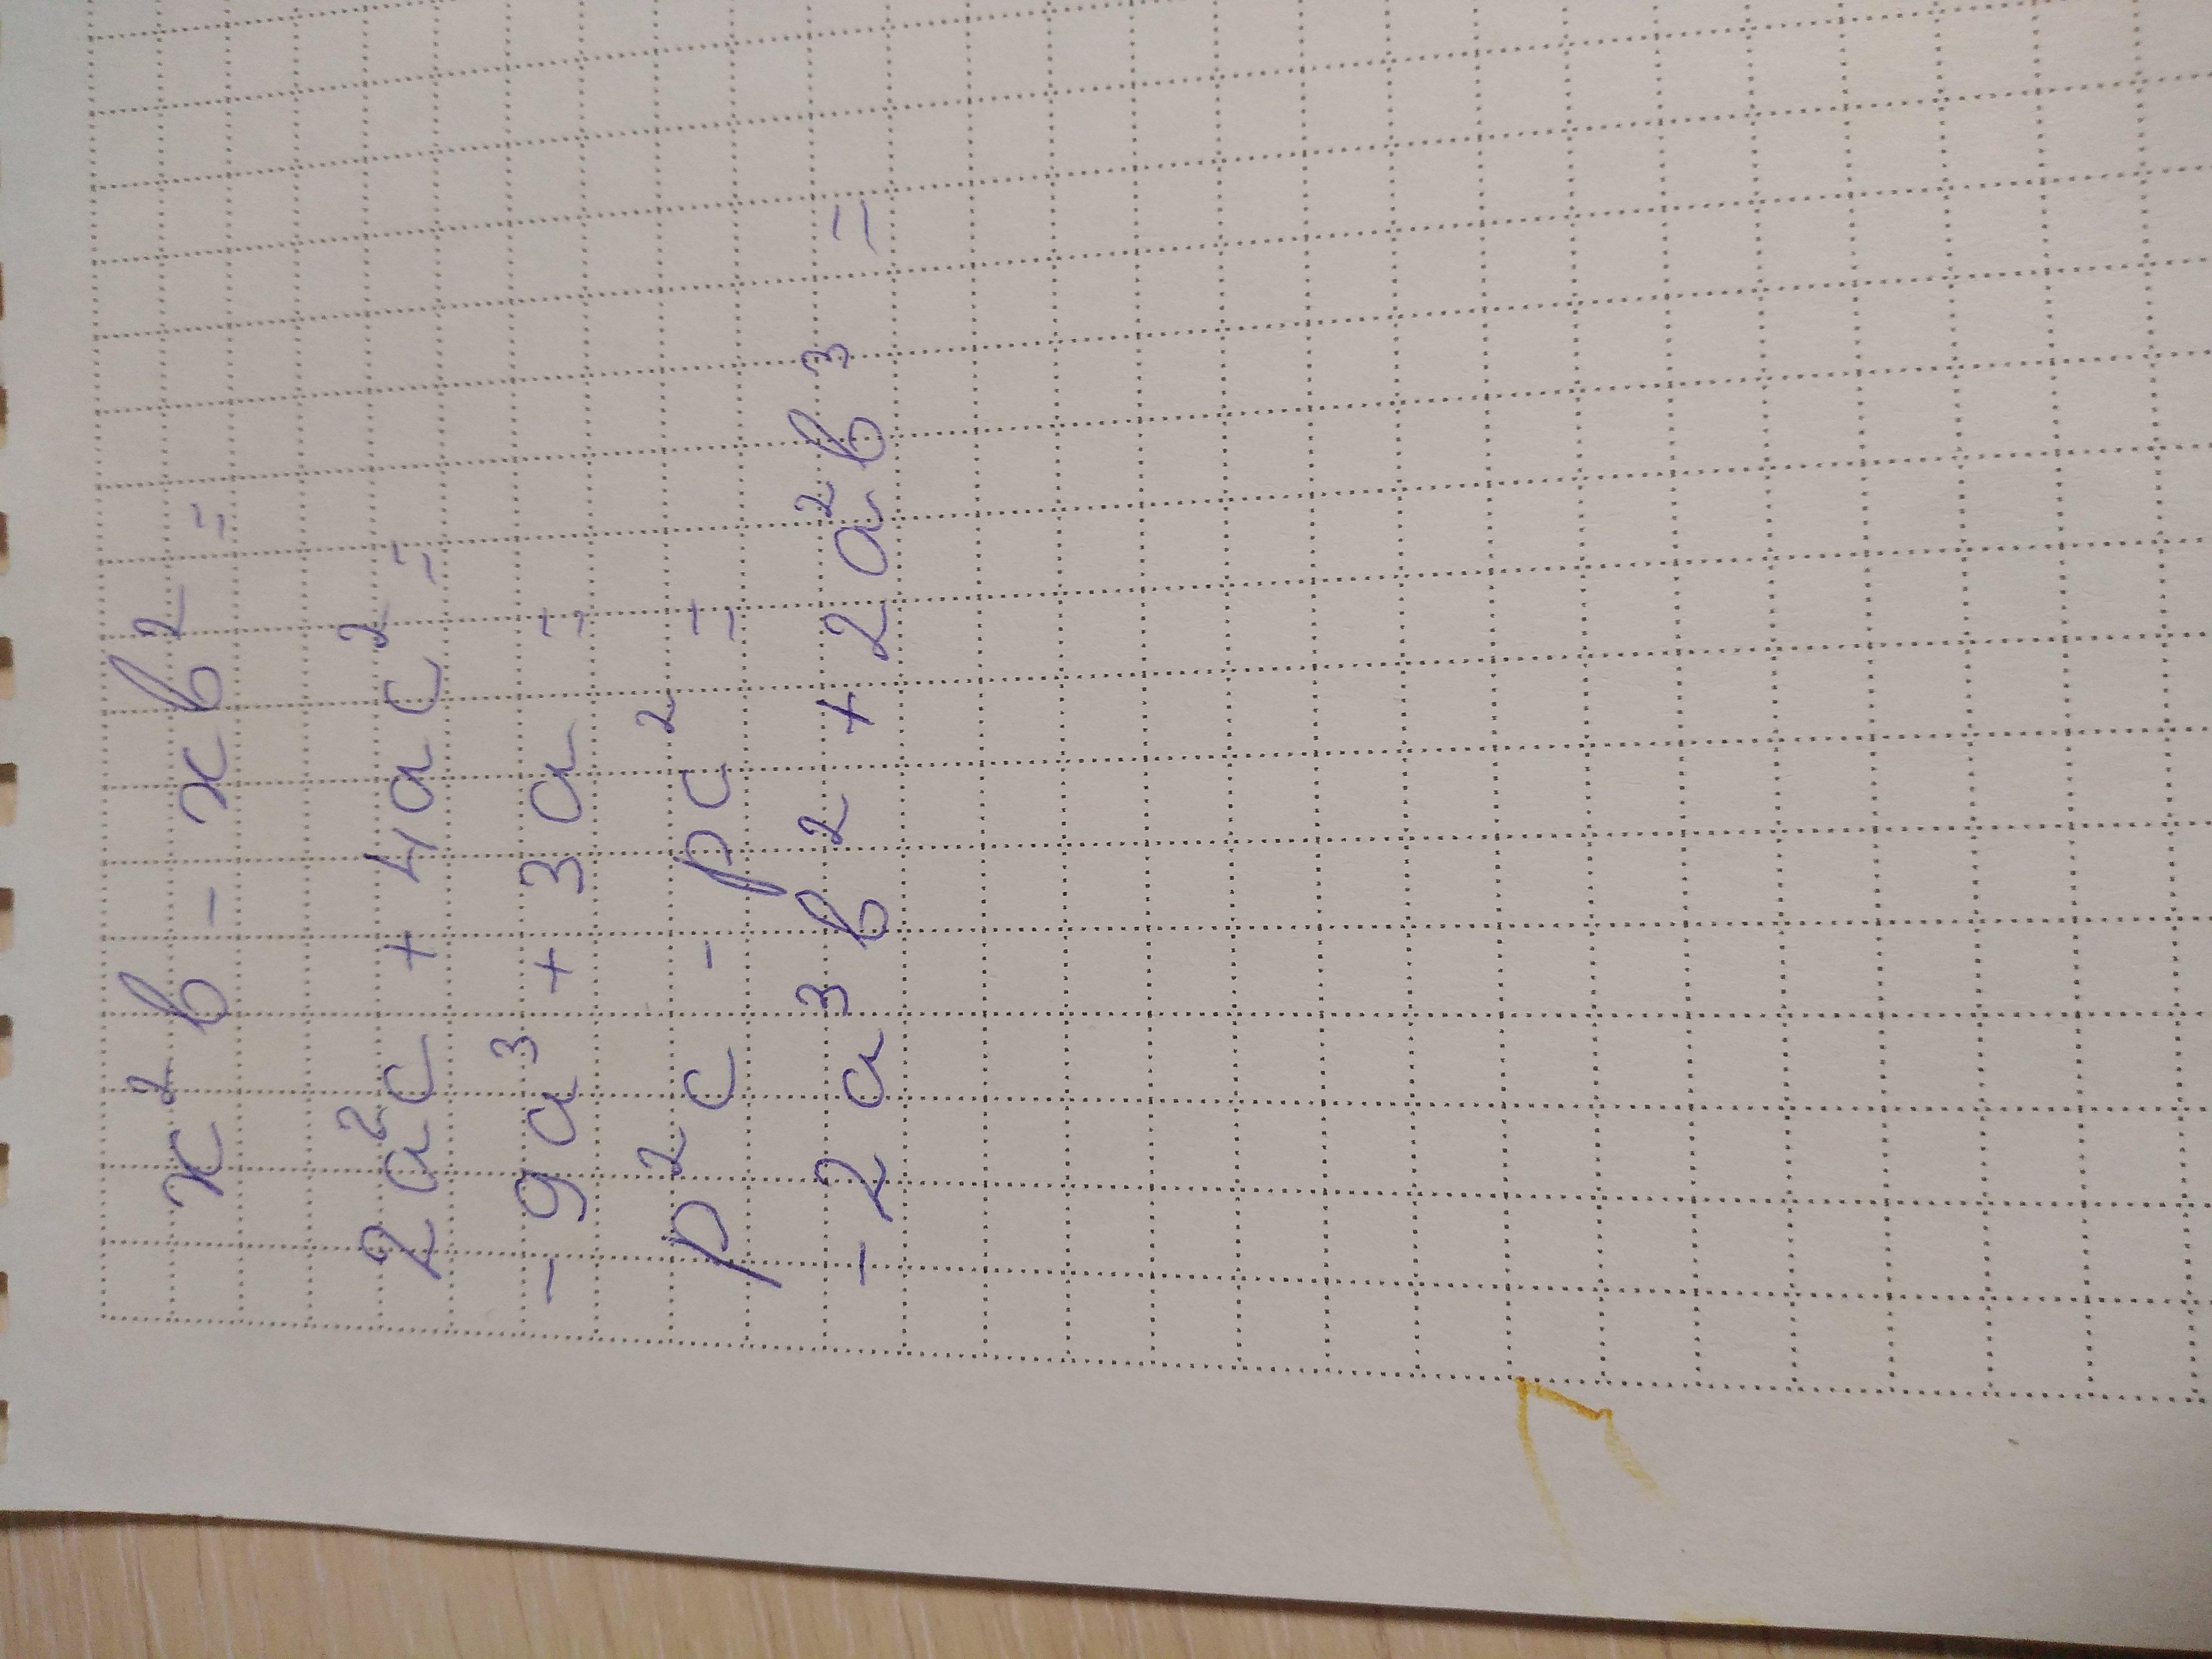 x²b - xb² =
2a²c + 4ac² =
- 9a³ + 3a =
p²c - pc² =
- 2a³b² + 2a²b³ =